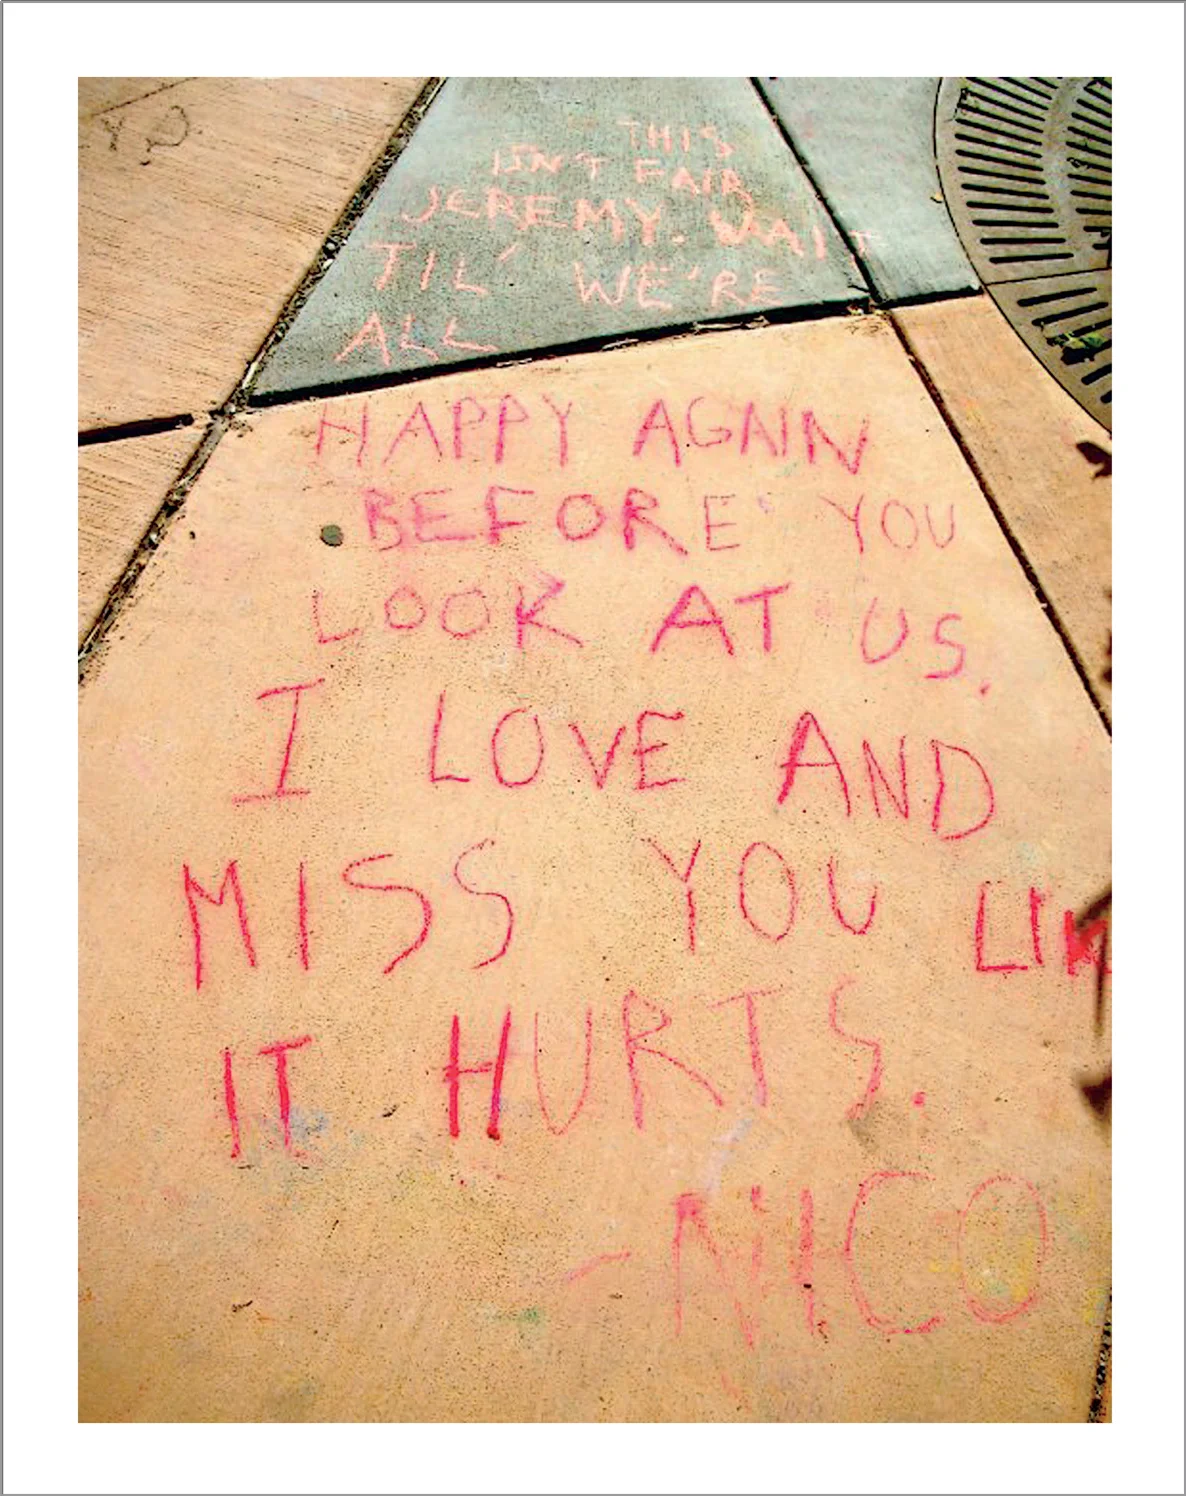 THIS
ISN'T FAIR
JEREMY. WAIT
TIL' WE'RE
ALL
HAPPY AGAIN
BEFORE YOU
LOOK AT US.
I LOVE AND
MISS YOU LIK
IT HURTS.
- NICO